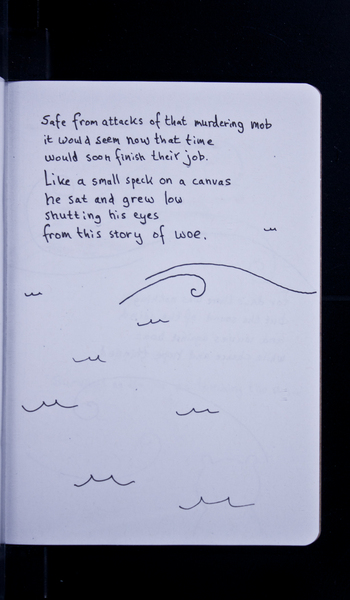 Safe from attacks of that murdering mob
it would seem now that time
would soon finish their job.
Like a small speck on a canvas
he sat and grew low
shutting his eyes
from this story of woe.